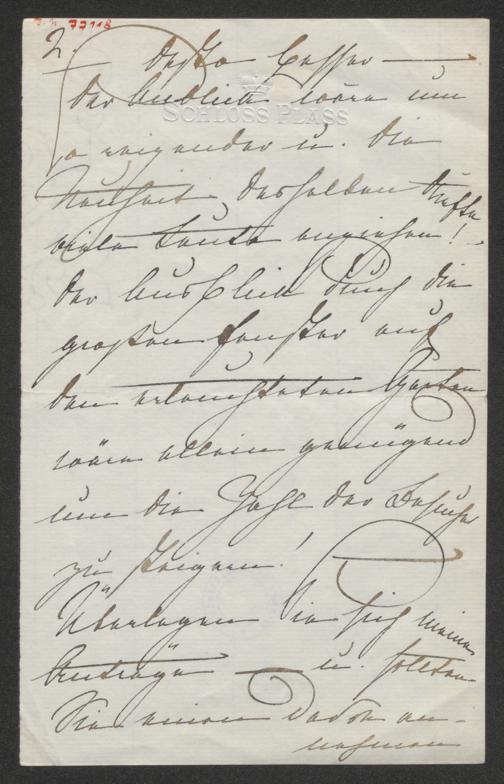 I.N. 77118
2.
desto besser —
SCHLOSS PLASS
der Anblick wäre um
so reizender u. die
Neuheit desselben dürfte
viele Leute anziehen! —
Der Ausblick durch die
großen Fenster auf
den erleuchteten Garten
wäre allein genügend
um die Zahl der Besucher
zu steigern!
Überlegen Sie sich meine
Anträge — u. sollten
Sie einen davon an-
nehmen